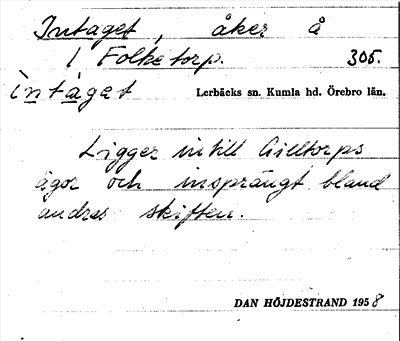 Intaget, åker å
1 Folketorp. 305.
ìntáget Lerbäcks sn. Kumla hd. Örebro län.
Ligger intill Gilltorps
ägor och insprängt bland
andras skiften.
DAN HÖJDESTRAND 1958